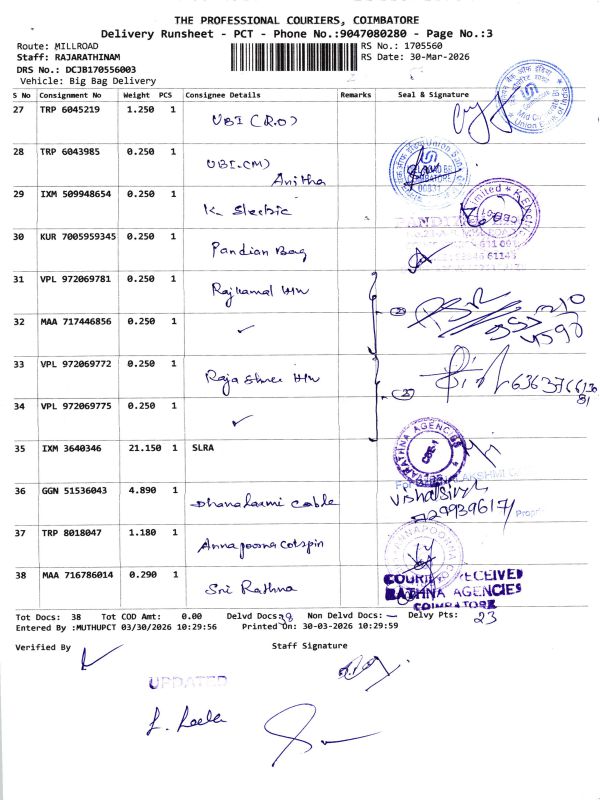 THE PROFESSIONAL COURIERS, COIMBATORE
Delivery Runsheet - PCT - Phone No.:9047080280 - Page No.:3
Route: MILLROAD RS No.: 1705560
Staff: RAJARATHINAM RS Date: 30-Mar-2026
DRS No.: DCJB170556003
Vehicle: Big Bag Delivery
S No Consignment No Weight PCS Consignee Details Remarks Seal & Signature
27 TRP 6045219 1.250 1 UBI (R.O)
28 TRP 6043985 0.250 1 UBI.(M) Anitha
29 IXM 509948654 0.250 1 K. Electric
30 KUR 7005959345 0.250 1 Pandian Bag
31 VPL 972069781 0.250 1 Rajkamal HW
32 MAA 717446856 0.250 1
33 VPL 972069772 0.250 1 Raja Shree HW
34 VPL 972069775 0.250 1
35 IXM 3640346 21.150 1 SLRA
36 GGN 51536043 4.890 1 Dhanalaxmi Cable
Vishalsingh
7299396171
37 TRP 8018047 1.180 1 Annapoorna Cotspin
38 MAA 716786014 0.290 1 Sri Rathna
COURIER RECEIVED
RATHNA AGENCIES
COIMBATORE
Tot Docs: 38 Tot COD Amt: 0.00 Delvd Docs: 38 Non Delvd Docs: — Delvy Pts: 23
Entered By :MUTHUPCT 03/30/2026 10:29:56 Printed On: 30-03-2026 10:29:59
Verified By Staff Signature
UPDATED